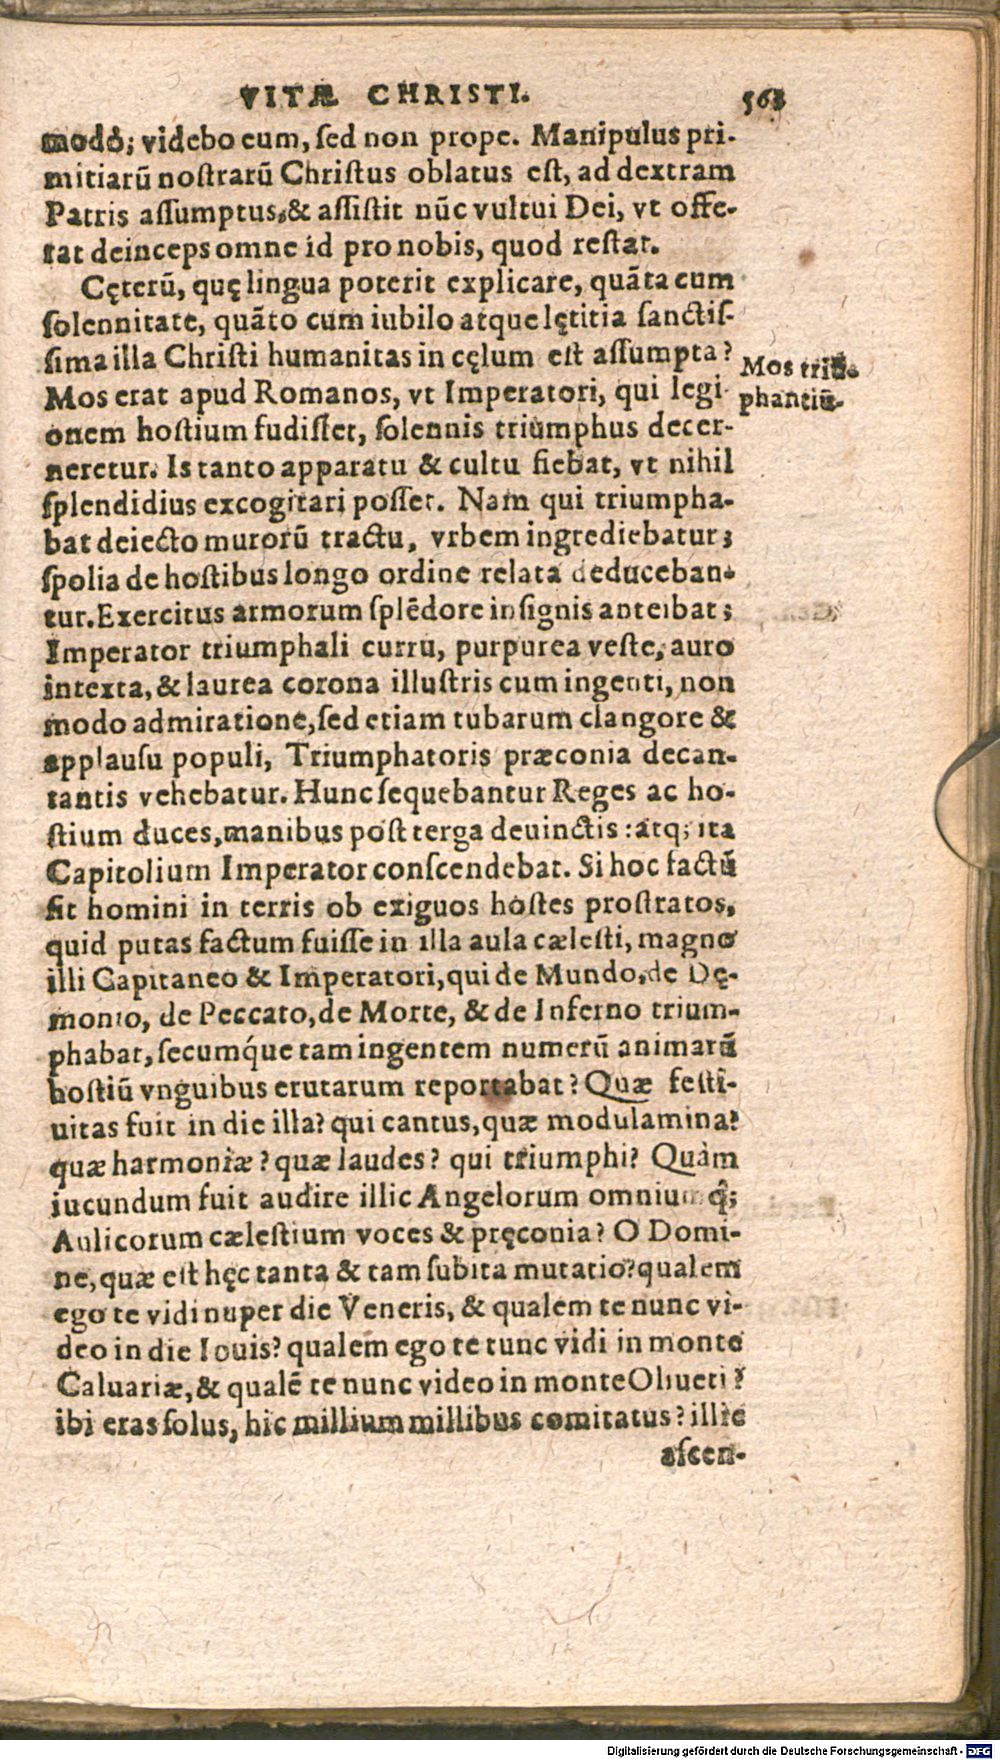 VITÆ CHRISTI. 563
modò; videbo eum, ſed non prope. Manipulus pri-
mitiarũ noſtrarũ Chriſtus oblatus eſt, ad dextram
Patris aſſumptus, & aſſiſtit nũc vultui Dei, vt offe-
rat deinceps omne id pro nobis, quod reſtat.
Cęterũ, quę lingua poterit explicare, quãta cum
ſolennitate, quãto cum iubilo atque lętitia ſanctiſ-
ſima illa Chriſti humanitas in cęlum eſt aſſumpta?
Mos triũ-
phantiũ.
Mos erat apud Romanos, vt Imperatori, qui legi
onem hoſtium fudiſſet, ſolennis triumphus decer-
neretur. Is tanto apparatu & cultu fiebat, vt nihil
ſplendidius excogitari poſſet. Nam qui triumpha-
bat deiecto murorũ tractu, vrbem ingrediebatur;
ſpolia de hoſtibus longo ordine relata deduceban-
tur. Exercitus armorum ſplẽdore inſignis anteibat;
Imperator triumphali curru, purpurea veſte, auro
intexta, & laurea corona illuſtris cum ingenti, non
modo admiratione, ſed etiam tubarum clangore &
applauſu populi, Triumphatoris præconia decan-
tantis vehebatur. Hunc ſequebantur Reges ac ho-
ſtium duces, manibus poſt terga deuinctis: atq; ita
Capitolium Imperator conſcendebat. Si hoc factũ
ſit homini in terris ob exiguos hoſtes proſtratos,
quid putas factum fuiſſe in illa aula cæleſti, magno
illi Capitaneo & Imperatori, qui de Mundo, de Dę-
monio, de Peccato, de Morte, & de Inferno trium-
phabat, ſecumq́ue tam ingentem numerũ animarũ
hoſtiũ vnguibus erutarum reportabat? Quæ feſti-
uitas fuit in die illa? qui cantus, quæ modulamina?
quæ harmoniæ? quæ laudes? qui triumphi? Quàm
iucundum fuit audire illic Angelorum omniumq́;
Aulicorum cæleſtium voces & pręconia? O Domi-
ne, quæ eſt hęc tanta & tam ſubita mutatio? qualem
ego te vidi nuper die Veneris, & qualem te nunc vi-
deo in die Iouis? qualem ego te tunc vidi in monte
Caluariæ, & qualẽ te nunc video in monte Oliueti?
ibi eras ſolus, hic millium millibus comitatus? illic
aſcen-
Digitalisierung gefördert durch die Deutsche Forschungsgemeinschaft - DFG